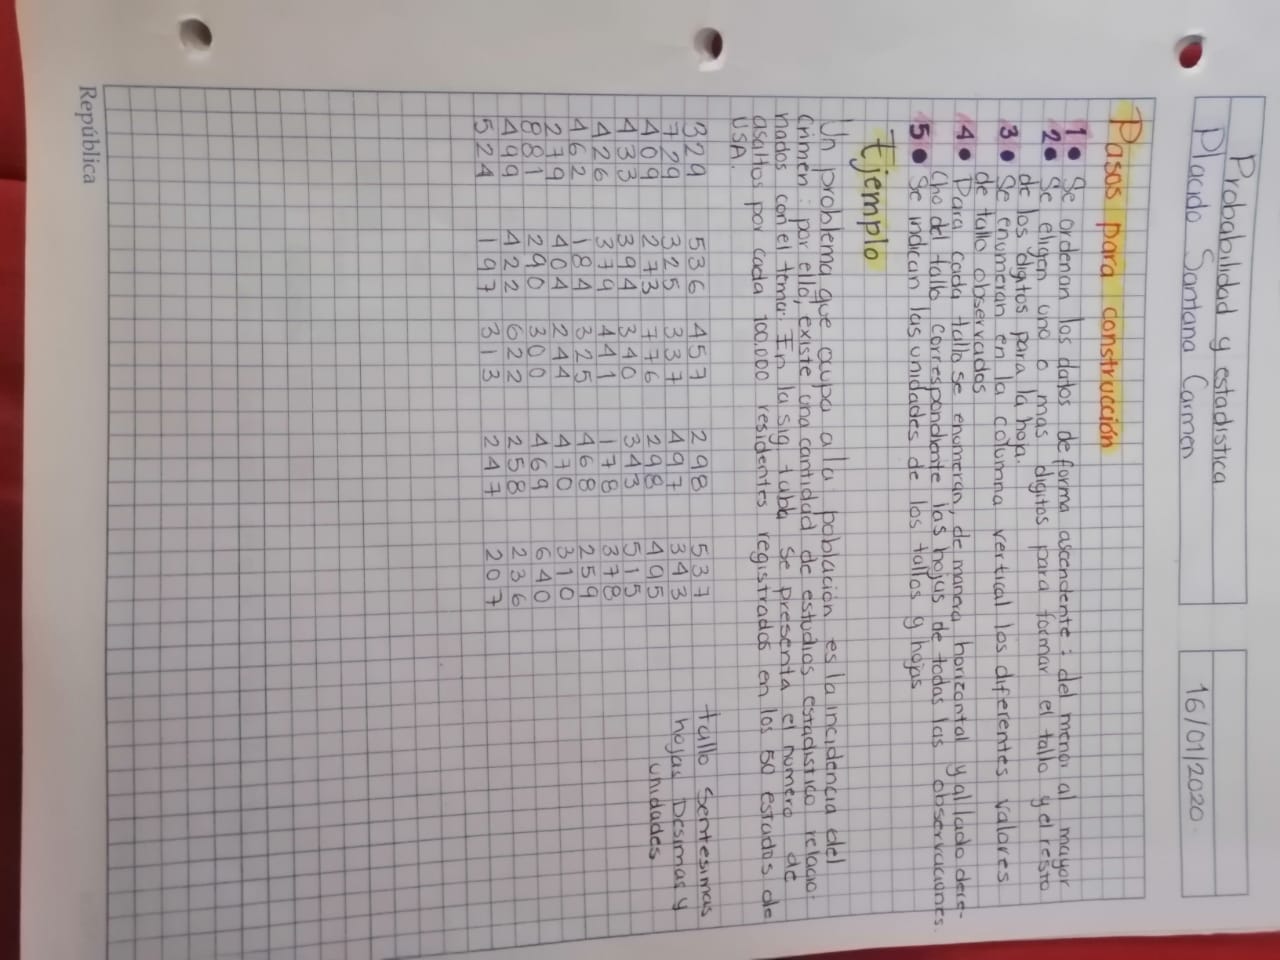 Probabilidad y estadistica
Placido Santana Carmen
16/01/2020
Pasos para construcción
1• Se ordenan los datos de forma ascendente: del menor al mayor
2• Se eligen uno o mas digitos para formar el tallo y el resto
de los digitos para la hoja.
3• Se enumeran en la columna vertical los diferentes valores
de tallo observados
4• Para cada tallo se enumeran, de manera horizontal y al lado dere-
cho del tallo correspondiente las hojas de todas las observaciones.
5• Se indican las unidades de los tallos y hojas
Ejemplo
Un problema que ocupa a la población es la incidencia del
crimen: por ello, existe una cantidad de estudios estadistico relacio-
nados con el tema. En la sig. tabla se presenta el número de
asaltos por cada 100,000 residentes registrados en los 50 estados de
USA.
329 536 457 298 537
729 325 337 497 343
409 273 776 298 495
433 394 340 343 515
426 379 441 178 378
462 184 325 468 259
279 404 244 470 310
881 290 300 469 640
499 422 622 258 236
524 197 313 247 207
tallo Sentesimas
hojas Desimas y
unidades
República